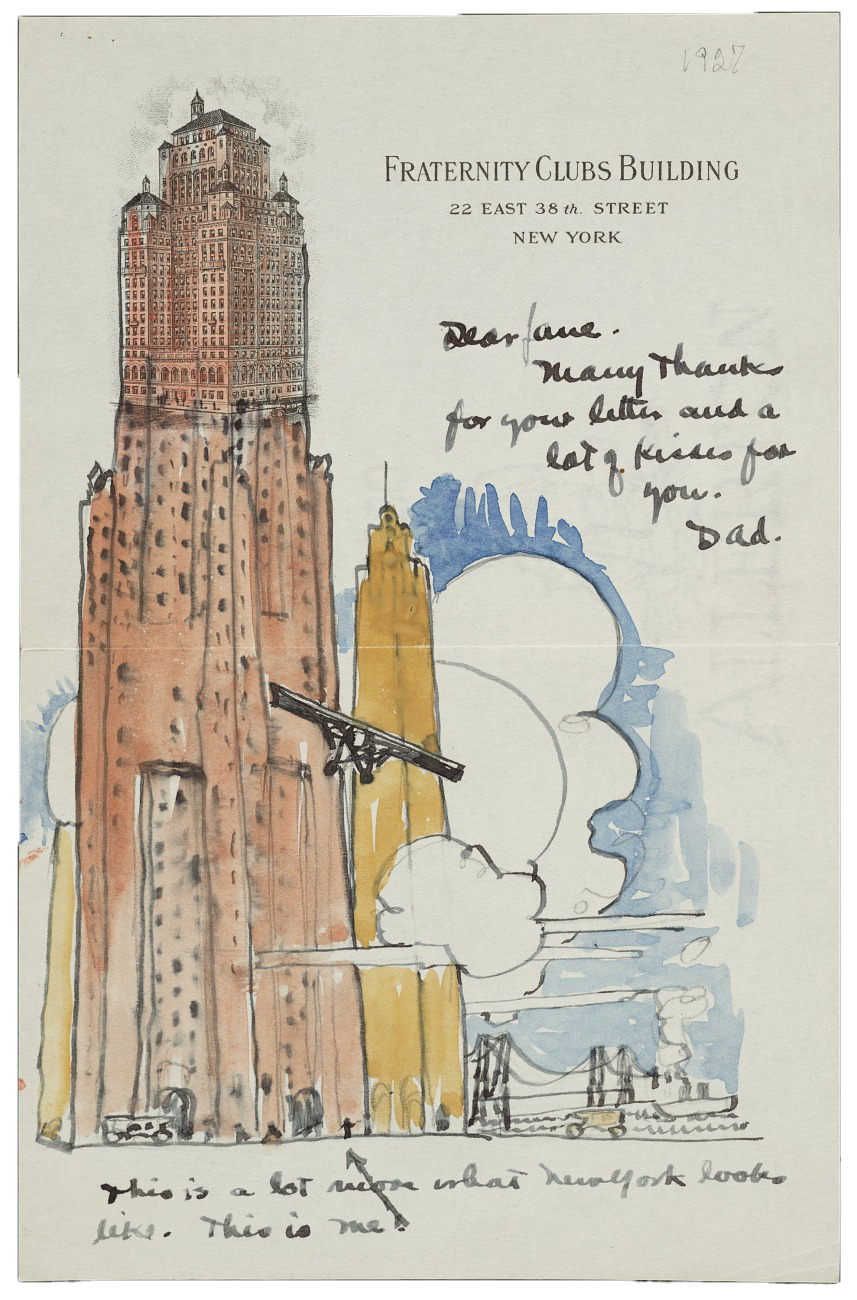 1927
FRATERNITY CLUBS BUILDING
22 EAST 38th. STREET
NEW YORK
Dear Jane.
Many thanks
for your letter and a
lot of kisses for
you.
Dad.
This is a lot more what New York looks
like. This is me!